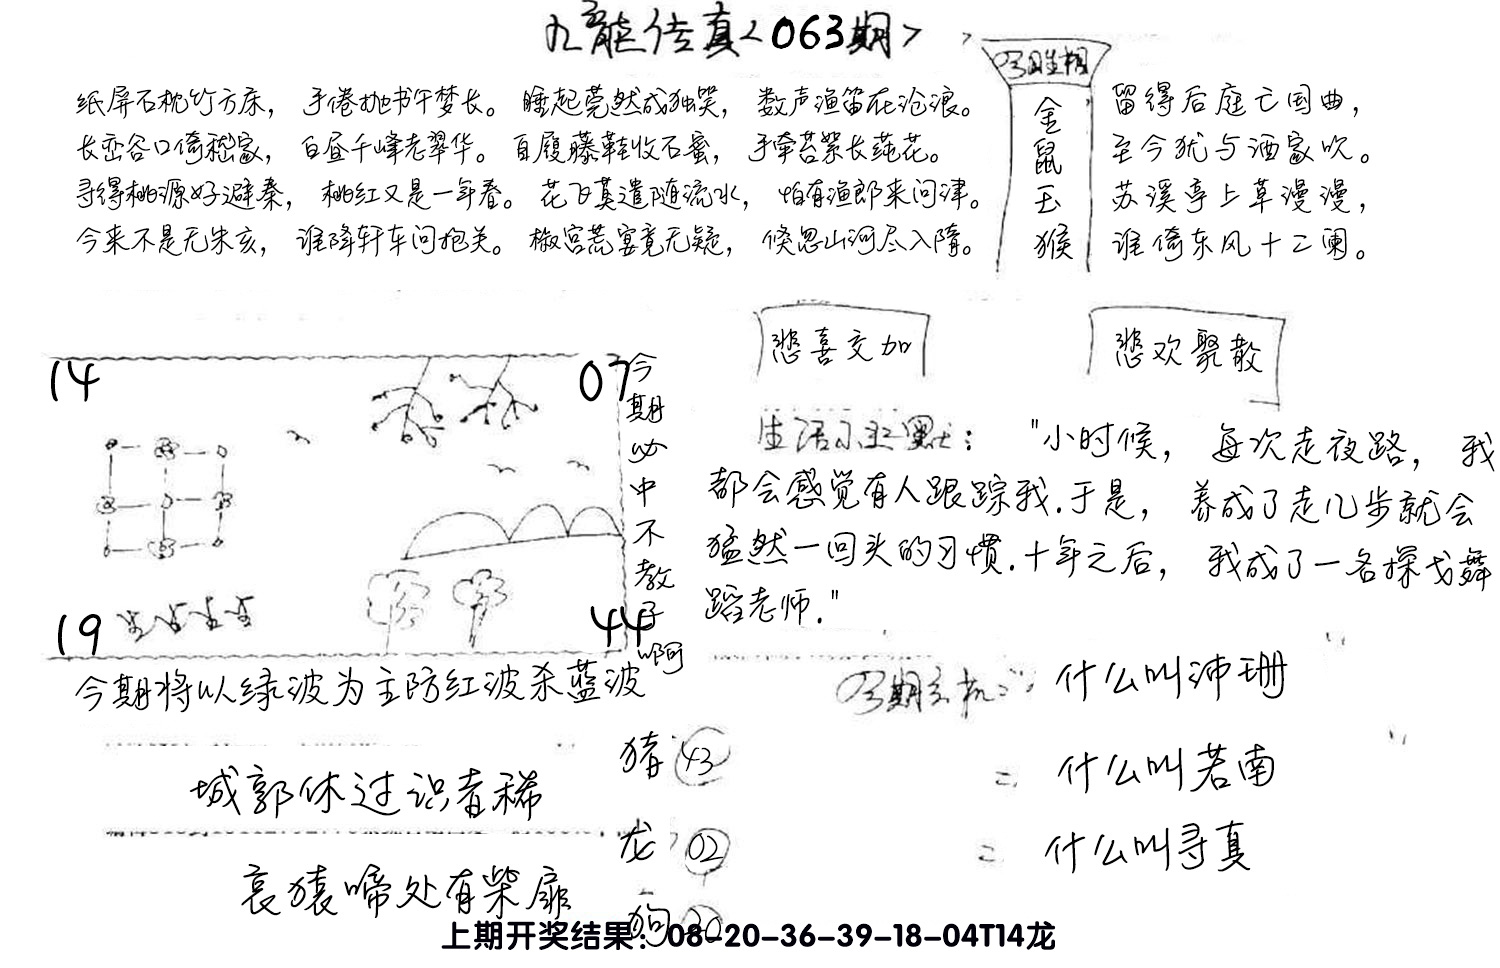 九龙传真<063期>
纸屏石枕竹方床，手倦抛书午梦长。睡起莞然成独笑，数声渔笛在沧浪。
长峦谷口倚嵇家，白昼千峰老翠华。自履藤鞋收石蜜，手牵苔絮长莼花。
寻得桃源好避秦，桃红又是一年春。花飞莫遣随流水，怕有渔郎来问津。
今来不是无朱亥，谁降轩车问抱关。椒宫荒宴竟无疑，倏忽山河尽入隋。
金
鼠
玉
猴
留得后庭亡国曲，
至今犹与酒家吹。
苏溪亭上草漫漫，
谁倚东风十二阑。
悲喜交加
悲欢聚散
14
07
19
44
今期必中不教子啊
生活小幽默："小时候，每次走夜路，我
都会感觉有人跟踪我.于是，养成了走几步就会
猛然一回头的习惯.十年之后，我成了一名探戈舞
蹈老师."
今期将以绿波为主防红波杀蓝波
今期玄机:
什么叫沛珊
什么叫若南
什么叫寻真
城郭休过识者稀
哀猿啼处有柴扉
猪 43
龙 02
狗 20
上期开奖结果：08-20-36-39-18-04T14龙